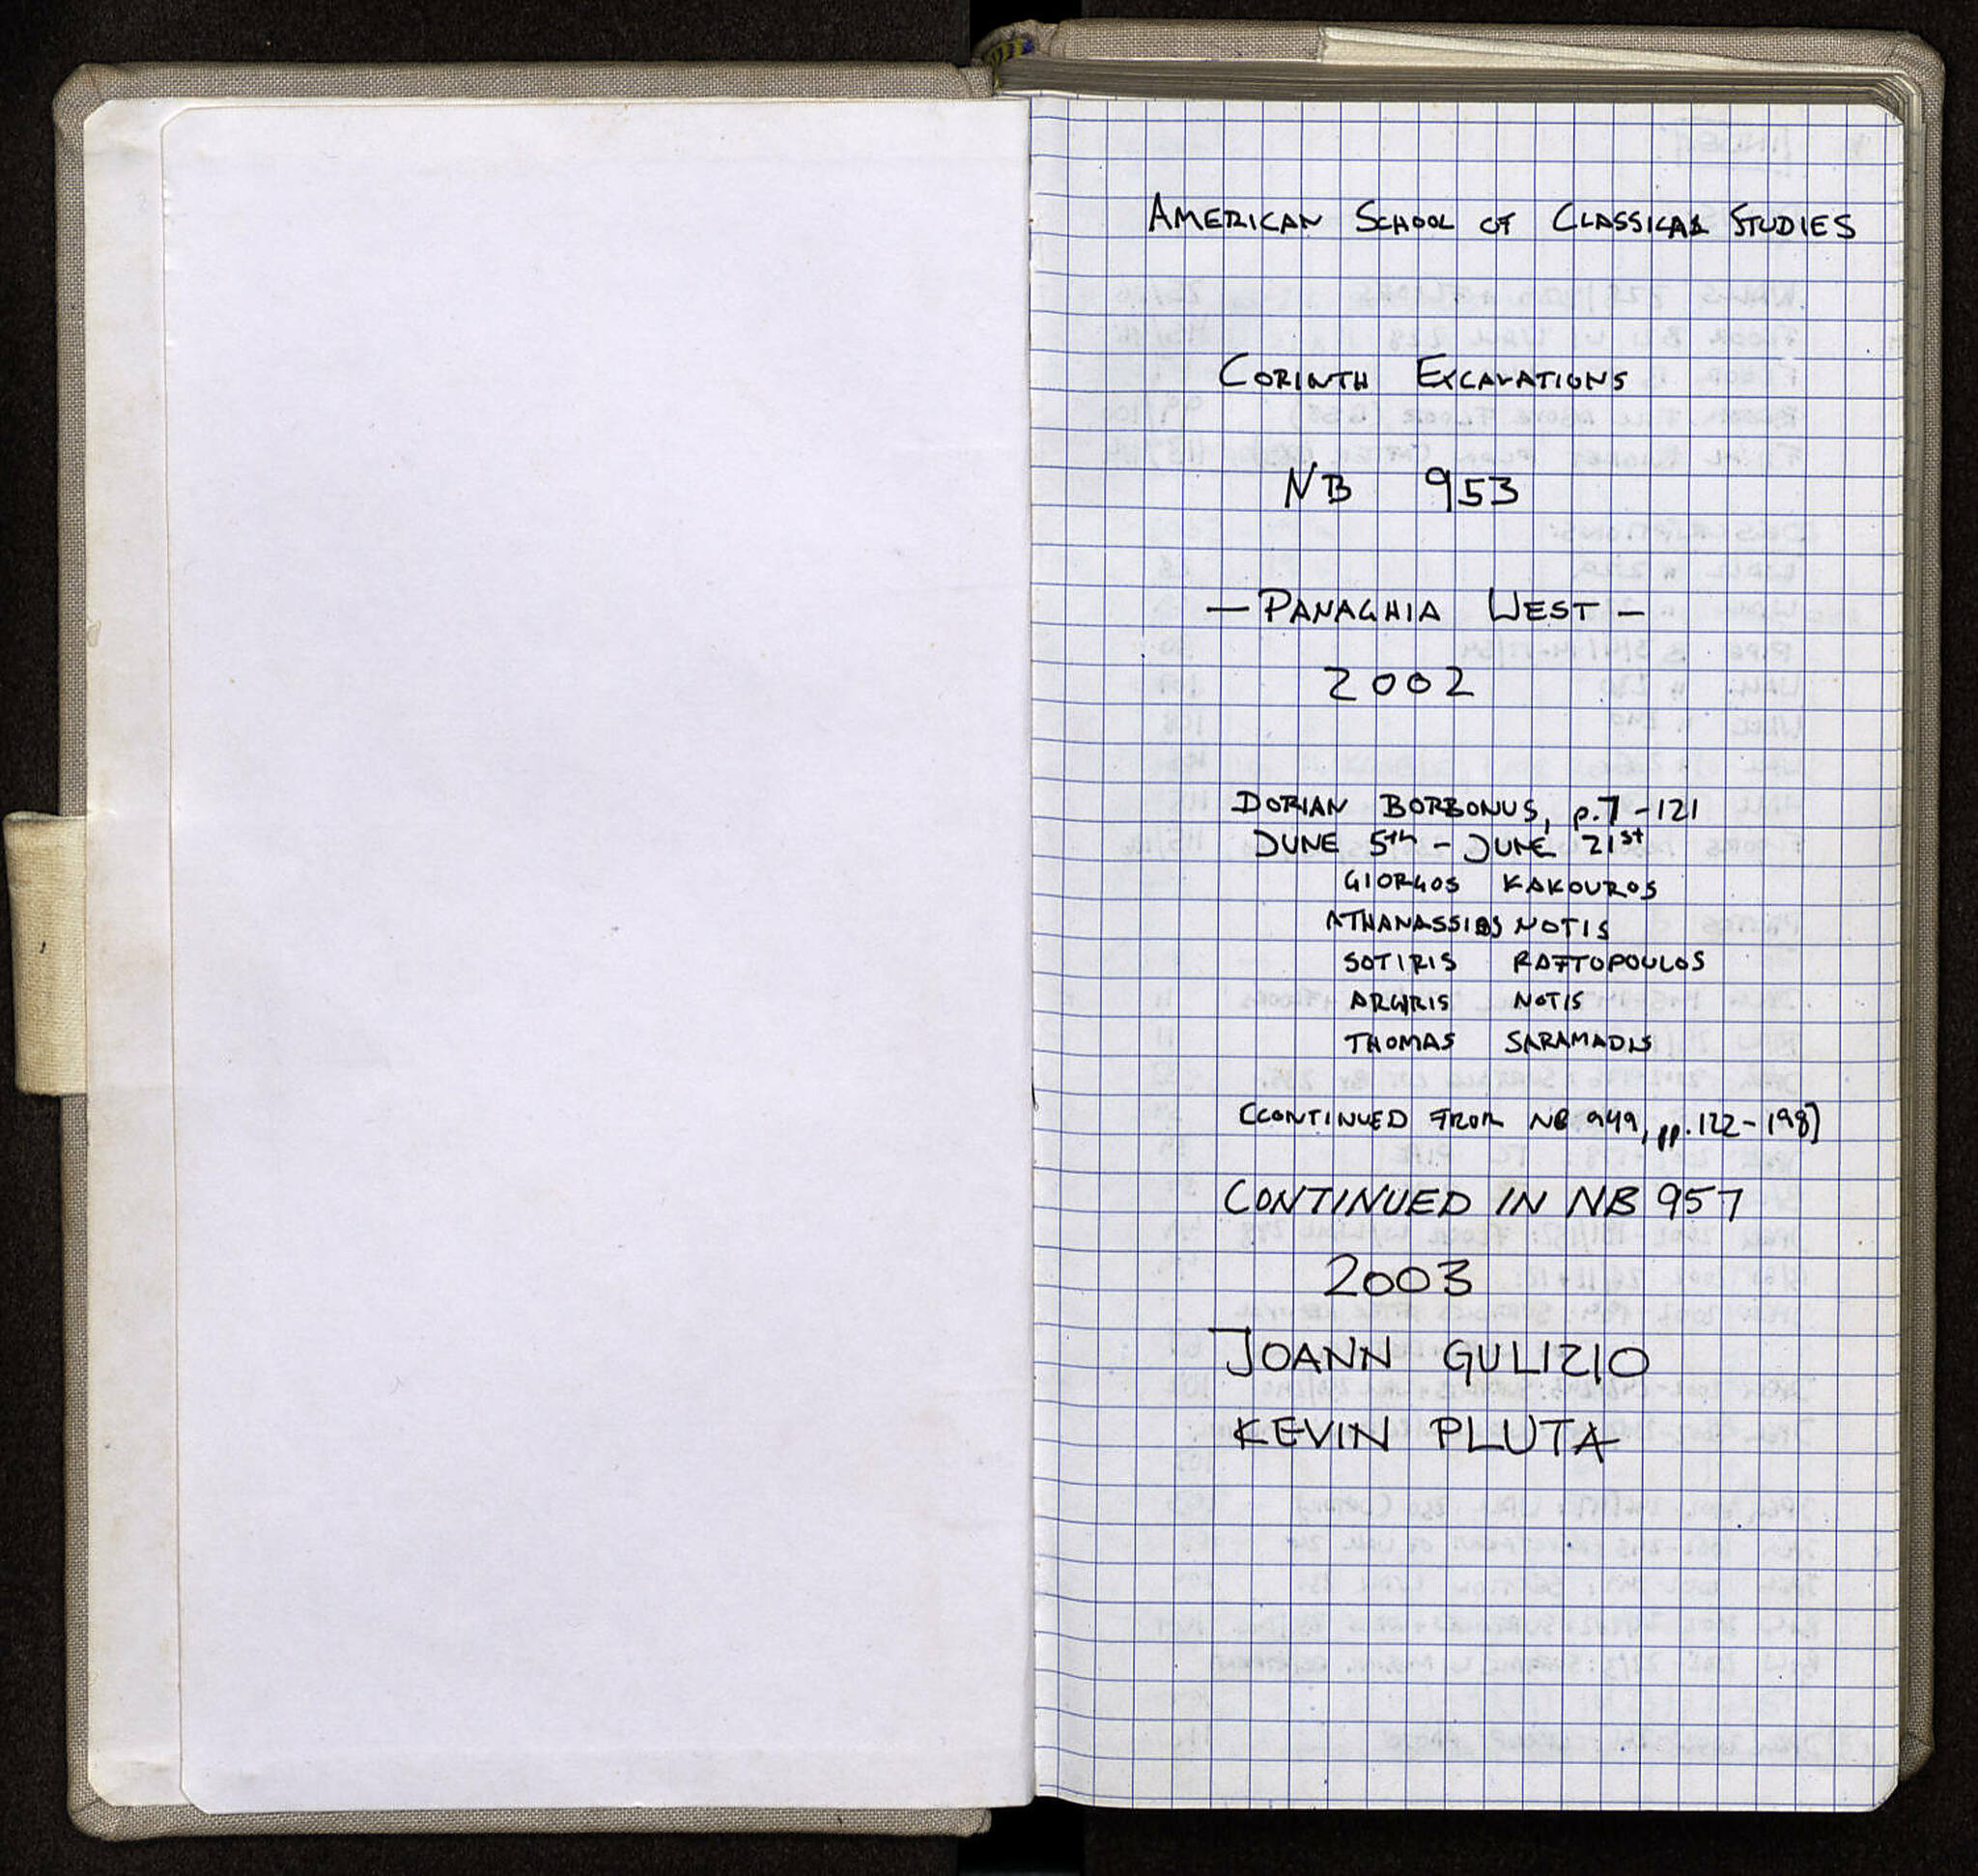 AMERICAN SCHOOL OF CLASSICAL STUDIES
CORINTH EXCAVATIONS
NB 953
— PANAGHIA WEST —
2002
DORIAN BORBONUS, p.7-121
JUNE 5th - JUNE 21st
GIORGOS KAKOUROS
ATHANASSIOS NOTIS
SOTIRIS RAFTOPOULOS
ARGYRIS NOTIS
THOMAS SARAMADIS
(CONTINUED FROM NB 949, pp.122-198)
CONTINUED IN NB 957
2003
JOANN GULIZIO
KEVIN PLUTA